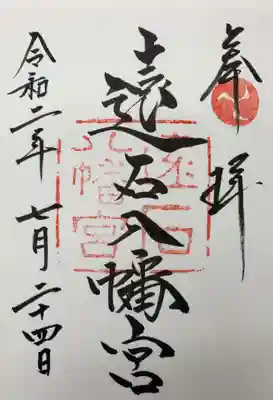 奉拝
遠石八幡宮
令和二年 七月二十四日
遠石八幡宮